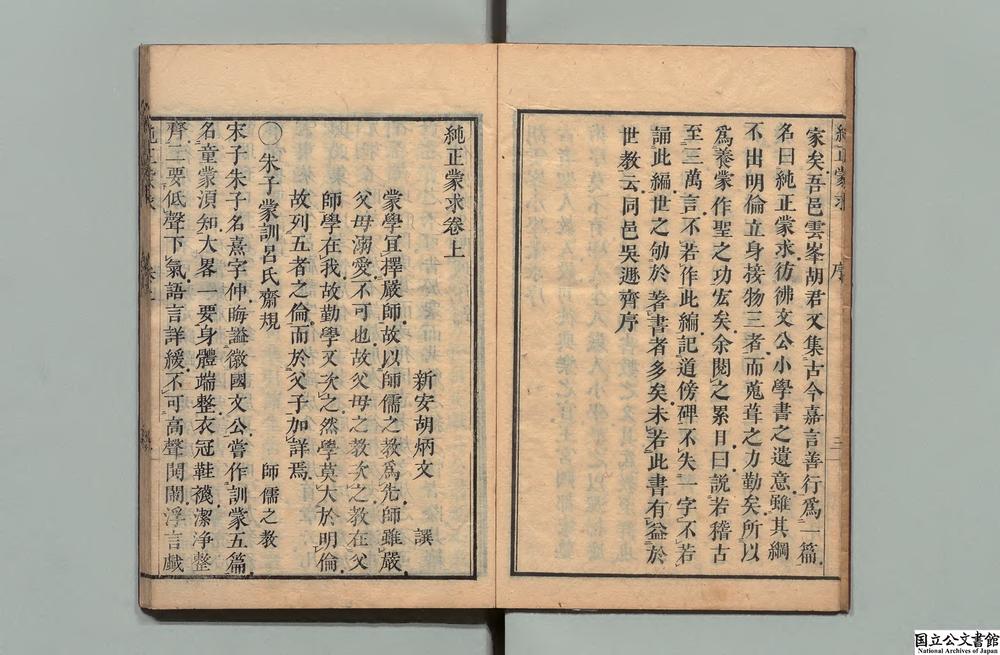 家矣吾邑雲峯胡君又集古今嘉言善行爲一篇
名曰純正蒙求彷彿文公小學書之遺意雖其綱
不出明倫立身接物三者而蒐葺之力勤矣所以
爲養蒙作聖之功宏矣余閱之累日曰説若稽古
至三萬言不若作此編記道傍碑不失一字不若
誦此編世之劬於著書者多矣未若此書有益於
世教云同邑吳遜齊序
純正蒙求卷上
新安胡炳文 譔
蒙學宜擇嚴師故以師儒之教爲先師雖嚴
父母溺愛不可也故父母之教次之教在父
師學在我故勤學又次之然學莫大於明倫
故列五者之倫而於父子加詳焉
〇朱子蒙訓呂氏齋規 師儒之教
宋子朱子名熹字仲晦謚徽國文公嘗作訓蒙五篇
名童蒙湏知大畧一要身體端整衣冠鞋襪潔浄整
齊二要低聲下氣語言詳緩不可高聲鬧閙浮言戯
純正蒙求 序
国立公文書館
National Archives of Japan